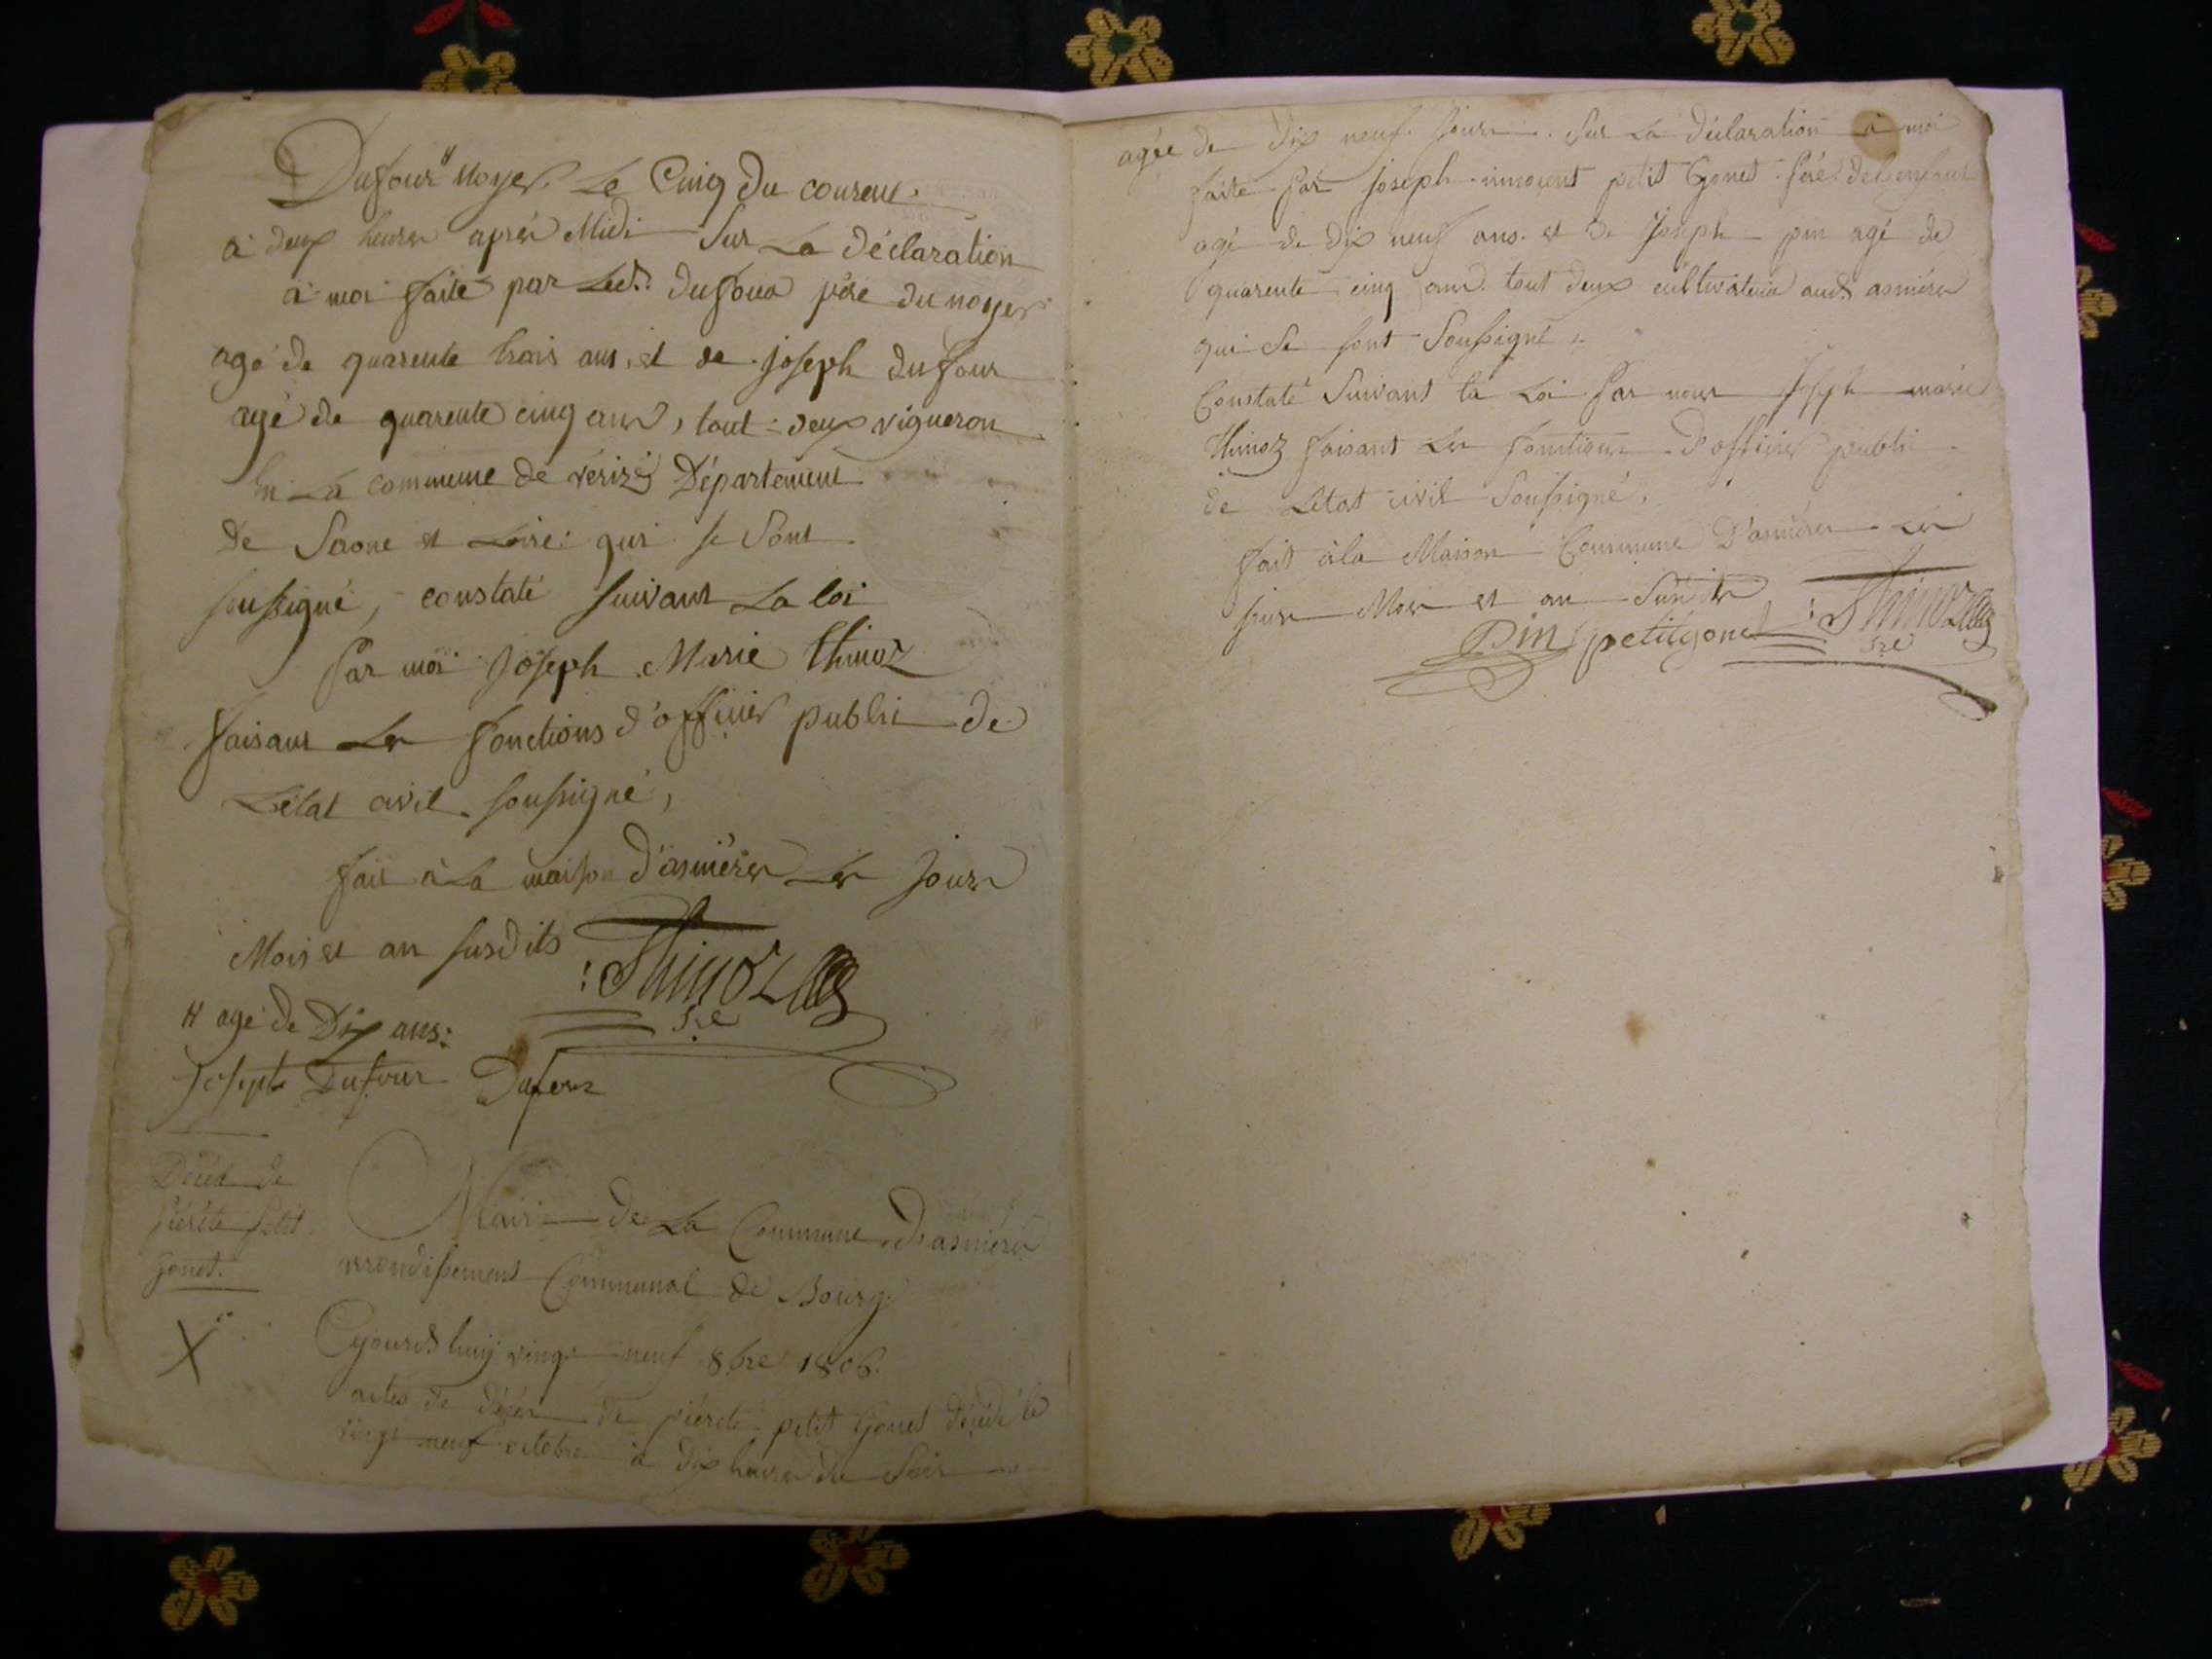 Dufour # noyer. Le Cinq du courent.
à deux heures après Midi Sur La déclaration
à moi faite par Led.t dufour père du noyer
agé de quarente trois ans, et de joseph dufour
agé de quarente cinq ans, tout deux vigneron
En La commune de vérizé Département
de Saone et Loire qui se Sont
soussigné, constaté suivant La loi
Par moi joseph Marie thinoz
faisant Les fonctions d'officier public de
L'état civil soussigné,
fait à La maison d'asnières Les jours
Mois et an susdits Thinoz
# agé de Dix ans:
Joseph Dufour Dufour
Décès de
piérete petit
gonet.
Mairie de La Commune d'asnières
arrondissement Communal de Bourg
Cejourd huij vingt neuf 8bre 1806.
actes de décès de piérete petit gonet décédé le
vingt neuf octobre à dix heures du Soir
agée de dix neuf jours. Sur La déclaration à moi
faite Par joseph innocent petit Gonet Père de Lenfant
agé de dix neuf ans. et de Joseph pin agé de
quarente cinq ans. tout deux cultivateur aud.t asnières
qui Se sont Soussigné
Constaté Suivant la Loi Par nous Joseph marie
thinoz faisant Les fonctions d'officier public
de Létat civil Soussigné.
fait à la Maison Commune D'asnières Les
jour Mois et an Susdits Thinoz
Pin petitgonet